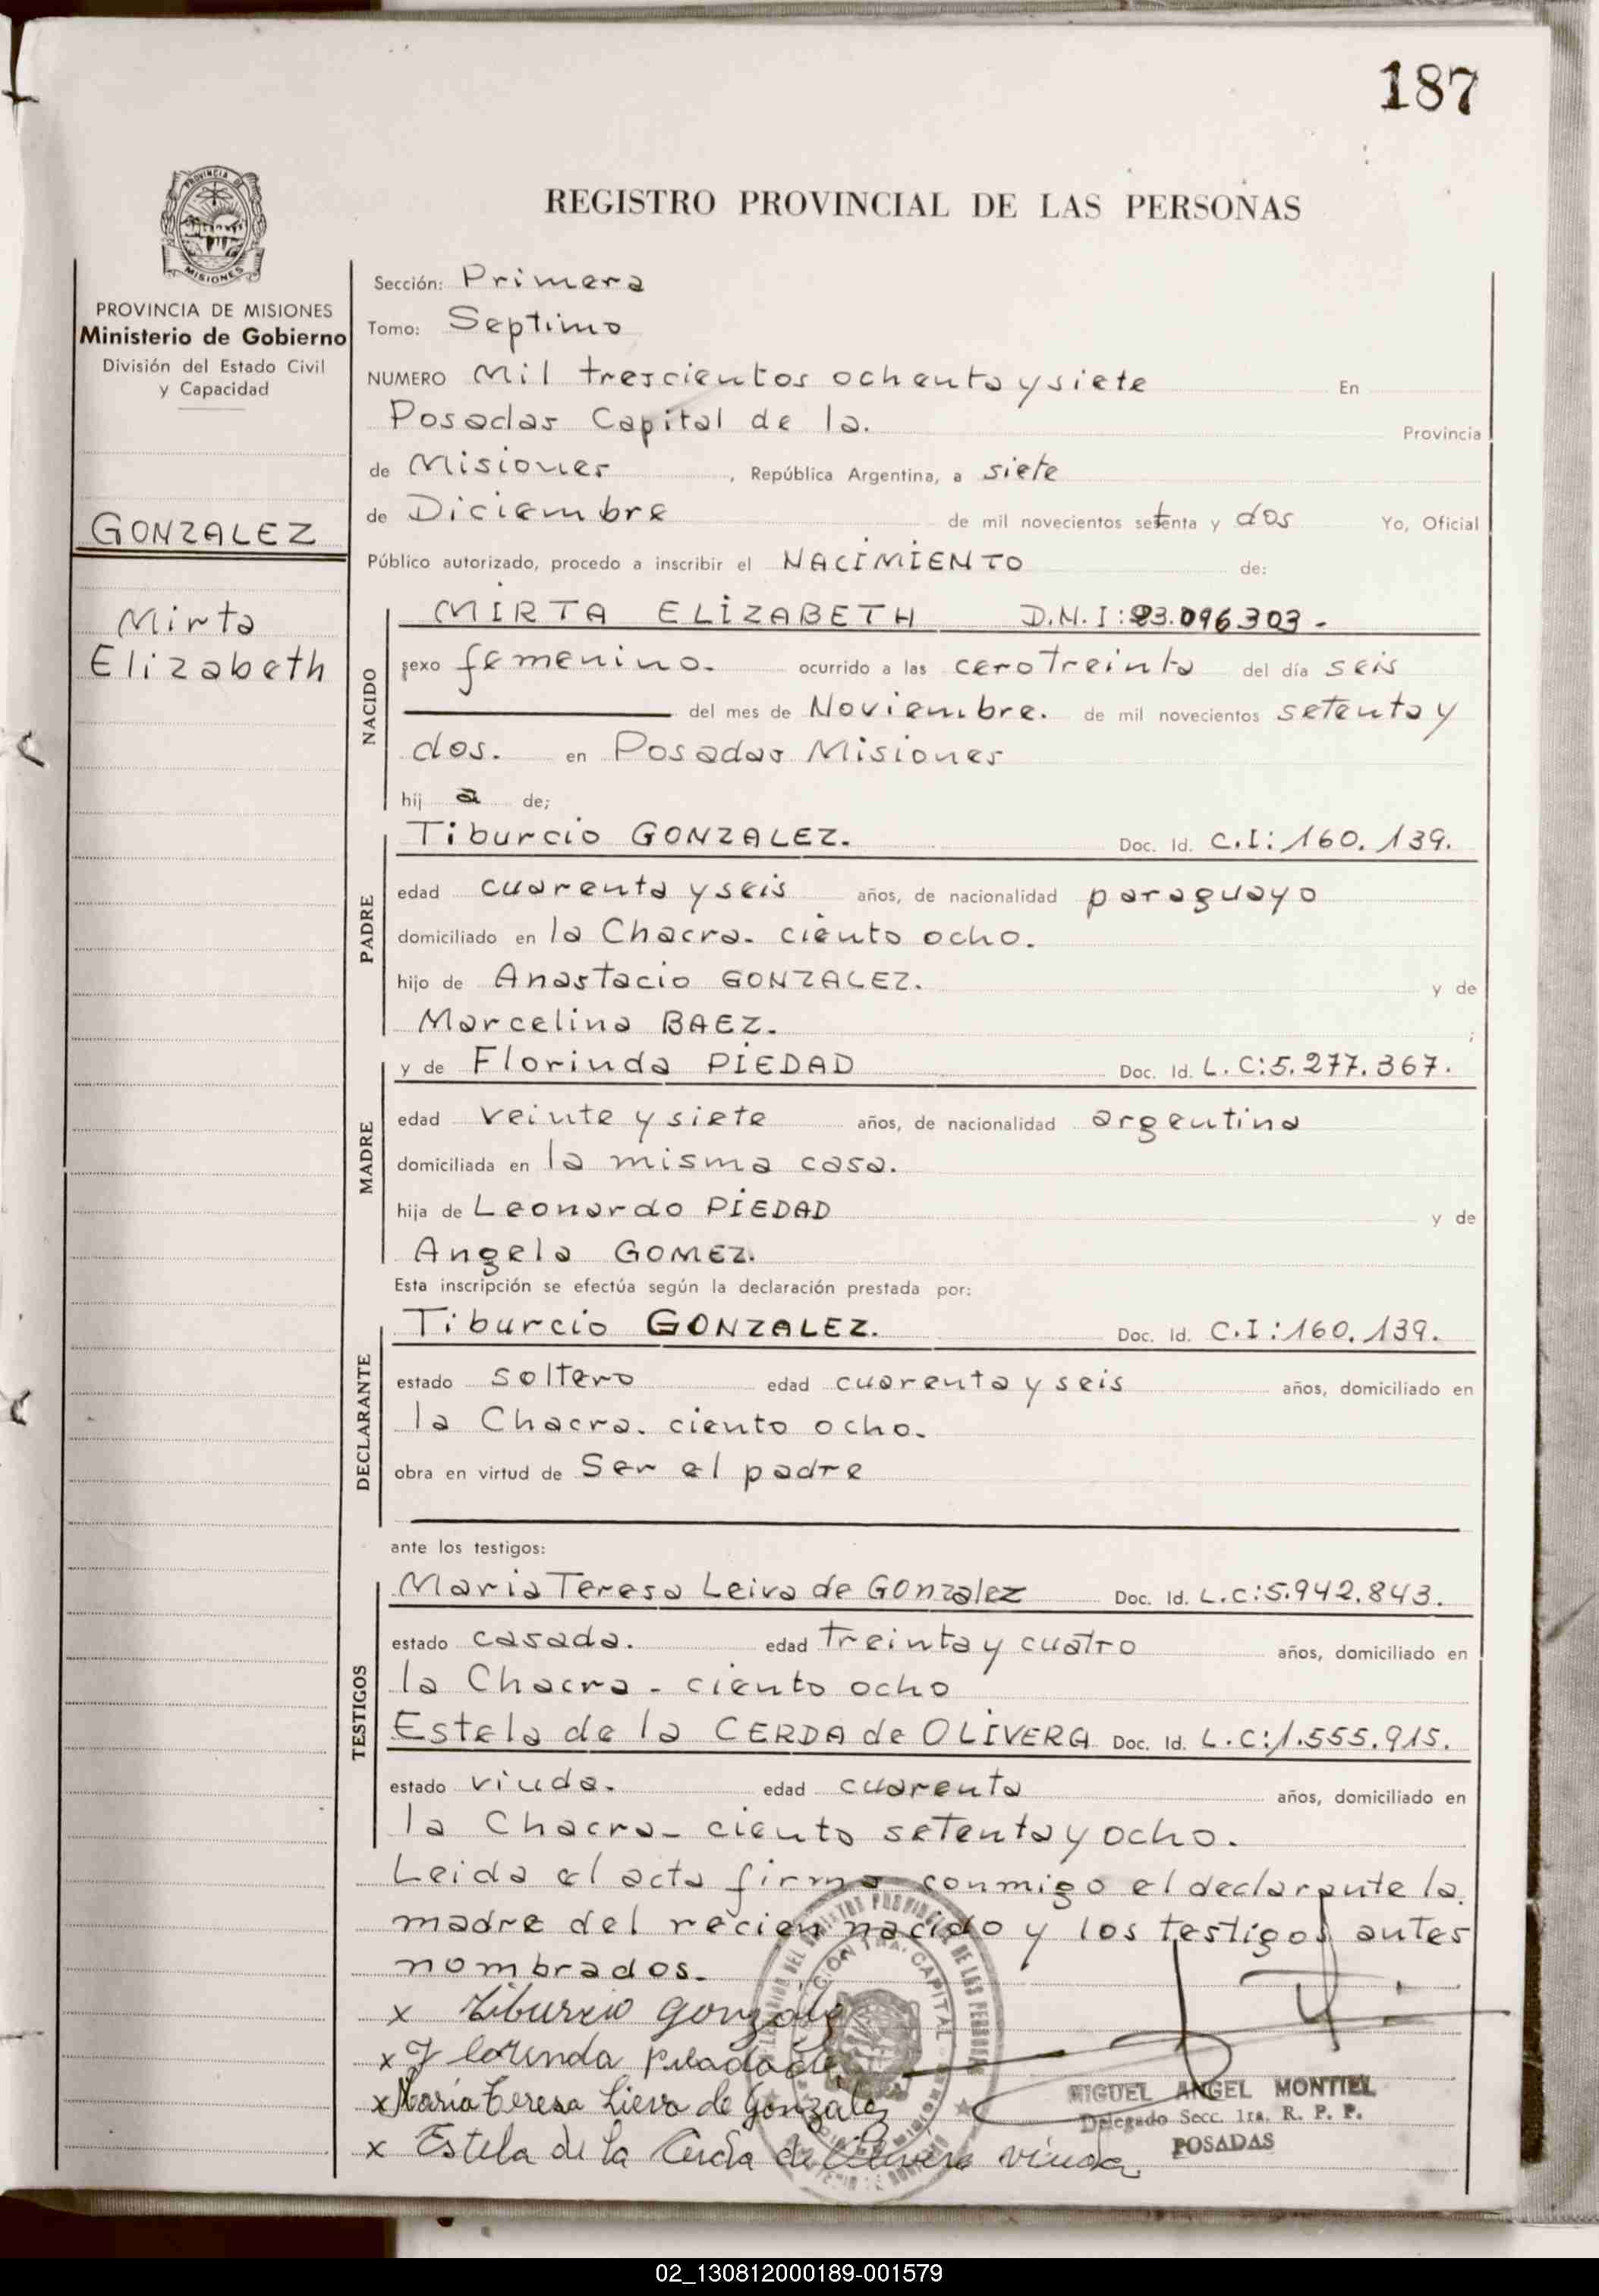 187
REGISTRO PROVINCIAL DE LAS PERSONAS
PROVINCIA DE MISIONES
MISIONES
PROVINCIA DE MISIONES
Ministerio de Gobierno
División del Estado Civil
y Capacidad
GONZALEZ
Mirta
Elizabeth
Sección: Primera
Tomo: Septimo
NUMERO Mil trescientos ochenta y siete En
Posadas Capital de la. Provincia
de Misiones, República Argentina, a siete
de Diciembre de mil novecientos setenta y dos Yo, Oficial
Público autorizado, procedo a inscribir el NACIMIENTO de:
NACIDO
MIRTA ELIZABETH D.N.I: 23.096.303.-
sexo femenino. ocurrido a las cero treinta del día seis
del mes de Noviembre. de mil novecientos setenta y
dos. en Posadas Misiones
hij a de;
PADRE
Tiburcio GONZALEZ. Doc. Id. C.I: 160.139.
edad cuarenta y seis años, de nacionalidad paraguayo
domiciliado en la Chacra. ciento ocho.
hijo de Anastacio GONZALEZ. y de
Marcelina BAEZ. ;
MADRE
y de Florinda PIEDAD Doc. Id. L.C: 5.277.367.
edad veinte y siete años, de nacionalidad argentina
domiciliada en la misma casa.
hija de Leonardo PIEDAD y de
Angela GOMEZ.
Esta inscripción se efectúa según la declaración prestada por:
DECLARANTE
Tiburcio GONZALEZ. Doc. Id. C.I: 160.139.
estado soltero edad cuarenta y seis años, domiciliado en
la Chacra. ciento ocho.
obra en virtud de Ser el padre
ante los testigos:
TESTIGOS
Maria Teresa Leiva de GOnzalez Doc. Id. L.C: 5.942.843.
estado casada. edad treinta y cuatro años, domiciliado en
la Chacra - ciento ocho
Estela de la CERDA de OLIVERA Doc. Id. L.C: 1.555.915.
estado viuda. edad cuarenta años, domiciliado en
la Chacra - ciento setenta y ocho.
Leida el acta firma conmigo el declarante la
madre del recien nacido y los testigos antes
nombrados.
x Tiburcio gonzalez
x Florinda
x Maria teresa Lieva de Gonzalez
x Estela de la Cerda de Olivera viuda
MIGUEL ANGEL MONTIEL
Delegado Secc. 1ra. R. P. P.
POSADAS
02_130812000189-001579